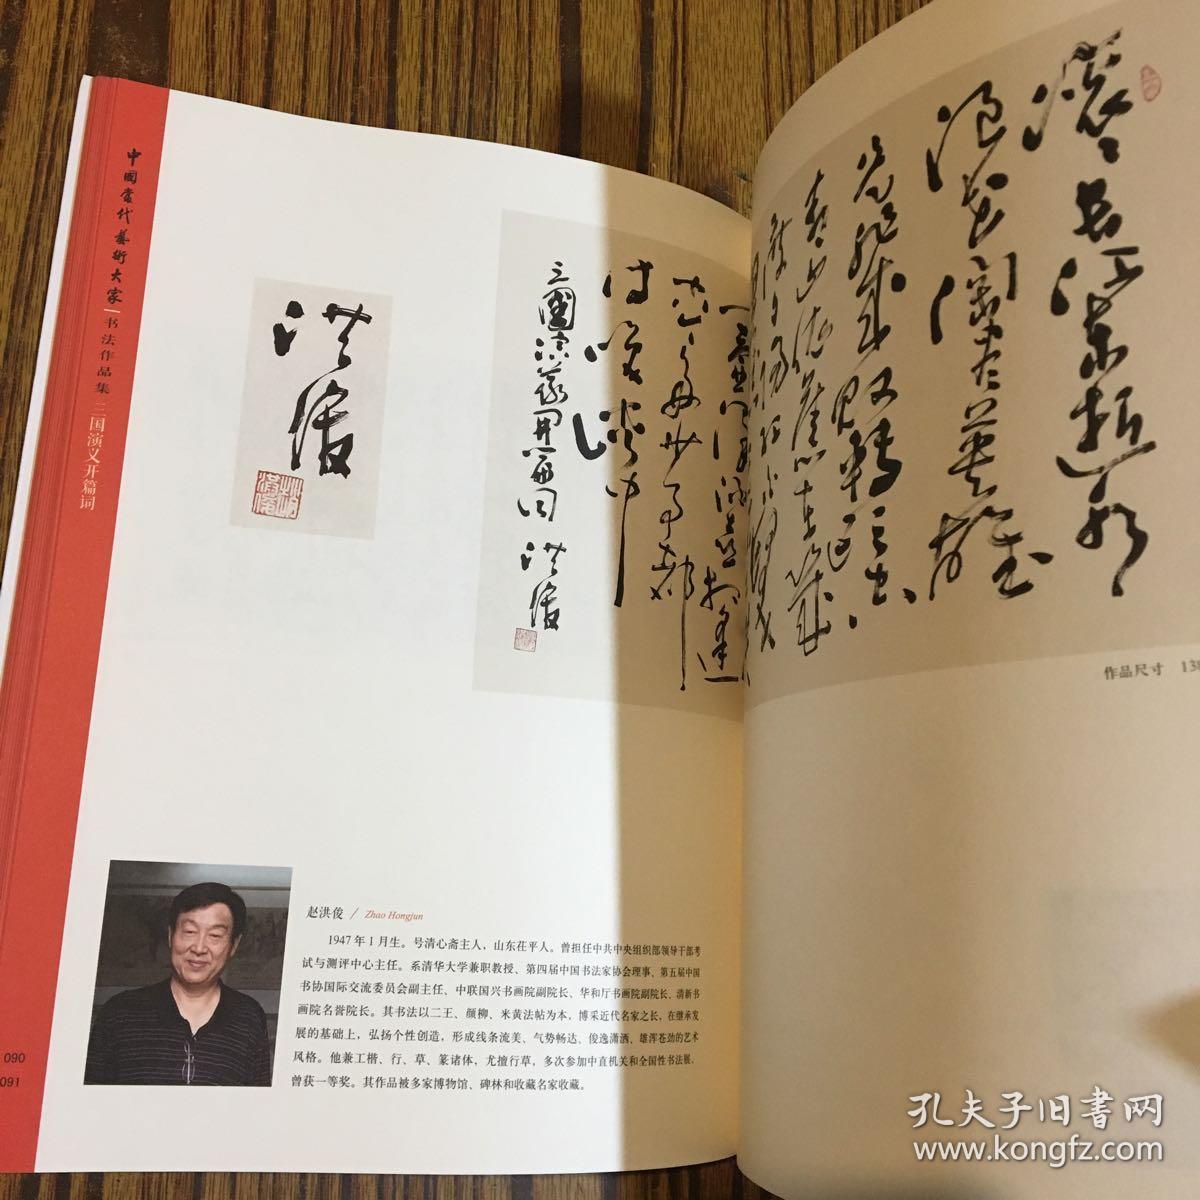 中國當代藝術大家|书法作品集 三国演义开篇词
滚滚长江东逝水
浪花淘尽英雄
是非成败转头空
青山依旧在几
度夕阳红
一壶浊酒喜相逢
古今多少事都
付笑谈中
三國演義开篇词 洪俊
洪俊
作品尺寸 138
赵洪俊 / Zhao Hongjun
1947年1月生。号清心斋主人,山东茌平人。曾担任中共中央组织部领导干部考
试与测评中心主任。系清华大学兼职教授、第四届中国书法家协会理事、第五届中国
书协国际交流委员会副主任、中联国兴书画院副院长、华和厅书画院副院长、清新书
画院名誉院长。其书法以二王、颜柳、米黄法帖为本,博采近代名家之长,在继承发
展的基础上,弘扬个性创造,形成线条流美、气势畅达、俊逸潇洒、雄浑苍劲的艺术
风格。他兼工楷、行、草、篆诸体,尤擅行草,多次参加中直机关和全国性书法展,
曾获一等奖。其作品被多家博物馆、碑林和收藏名家收藏。
090
091
孔夫子旧书网
www.kongfz.com